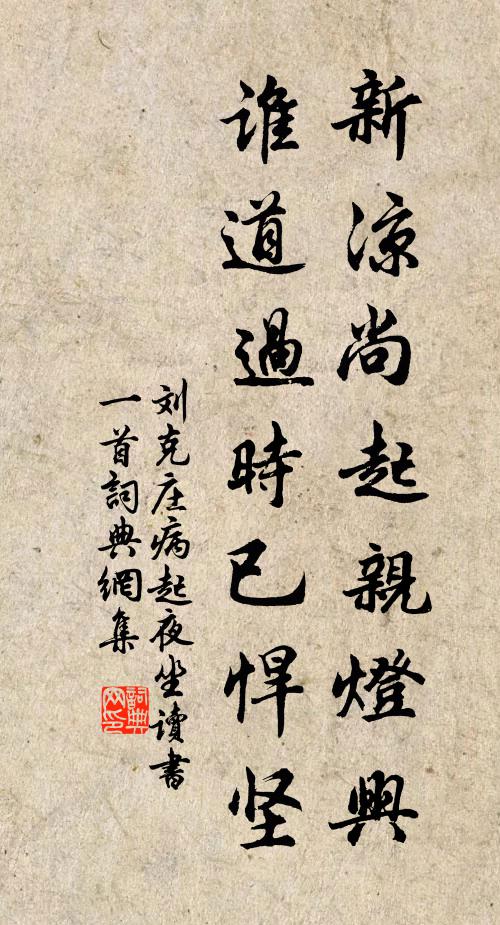 新凉尚起親燈興
谁道過時已悍坚
刘克庄病起夜坐讀書
一首詞典網集
詞典网印